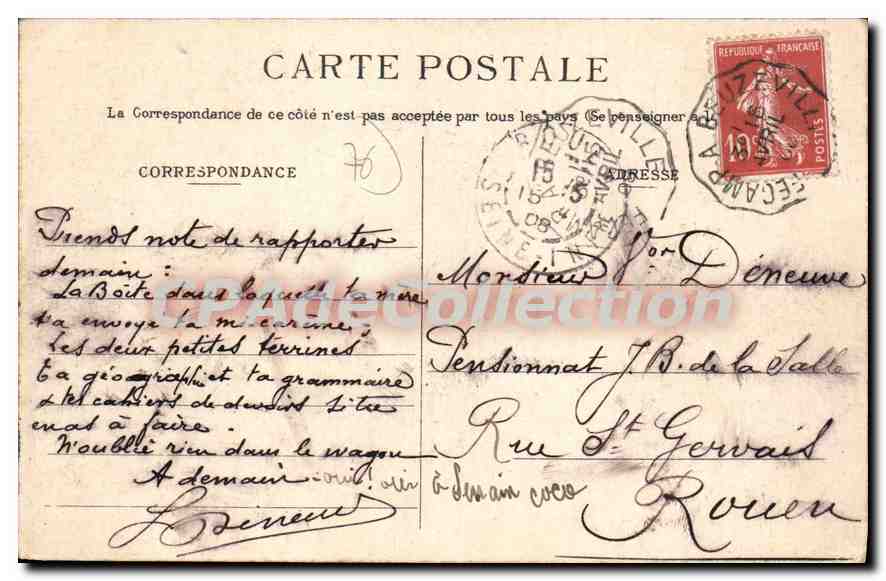 CARTE POSTALE
La Correspondance de ce côté n'est pas acceptée par tous les pays (Se renseigner à
CORRESPONDANCE
ADRESSE
RÉPUBLIQUE FRANÇAISE
10c
POSTES
BEUZEVILLE
15 AVRIL 08
76
CPAdeCollection
Prends note de rapporter
demain :
La Boîte dans laquelle ta mère
t'a envoyé ta mi-carême ;
Les deux petites terrines
Ta géographie et ta grammaire
& tes cahiers de devoirs si tu
en as à faire.
N'oublie rien dans le wagon
A demain
à demain coco
Monsieur Vor Déneuve
Pensionnat J. B. de la Salle
Rue St Gervais
Rouen